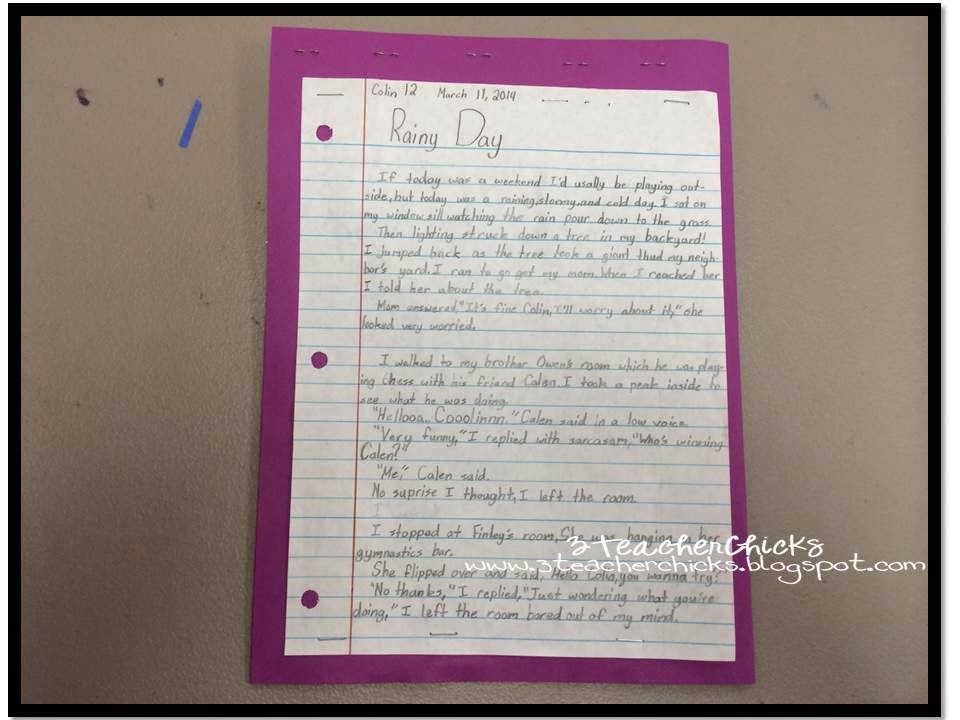 Colin 12 March 11, 2014
Rainy Day
If today was a weekend I'd usally be playing out-
side, but today was a raining, stormy, and cold day. I sat on
my window sill watching the rain pour down to the grass.
Then lighting struck down a tree in my backyard!
I jumped back as the tree took a giant thud my neigh-
bor's yard. I ran to go get my mom. When I reached her
I told her about the tree.
Mom answered, "It's fine Colin, I'll worry about it," she
looked very worried.
I walked to my brother Owen's room which he was play-
ing chess with his friend Calen. I took a peak inside to
see what he was doing.
"Hellooo.. Cooolinnn." Calen said in a low voice.
"Very funny," I replied with sarcasam, "Who's winning
Calen?"
"Me," Calen said.
No suprise I thought, I left the room.
I stopped at Finley's room, She was hanging her
gymnastics bar.
She flipped over and said, Hello Colin, you wanna try?
"No thanks," I replied, "Just wondering what you're
doing," I left the room bored out of my mind.
3TeacherChicks
www.3teacherchicks.blogspot.com